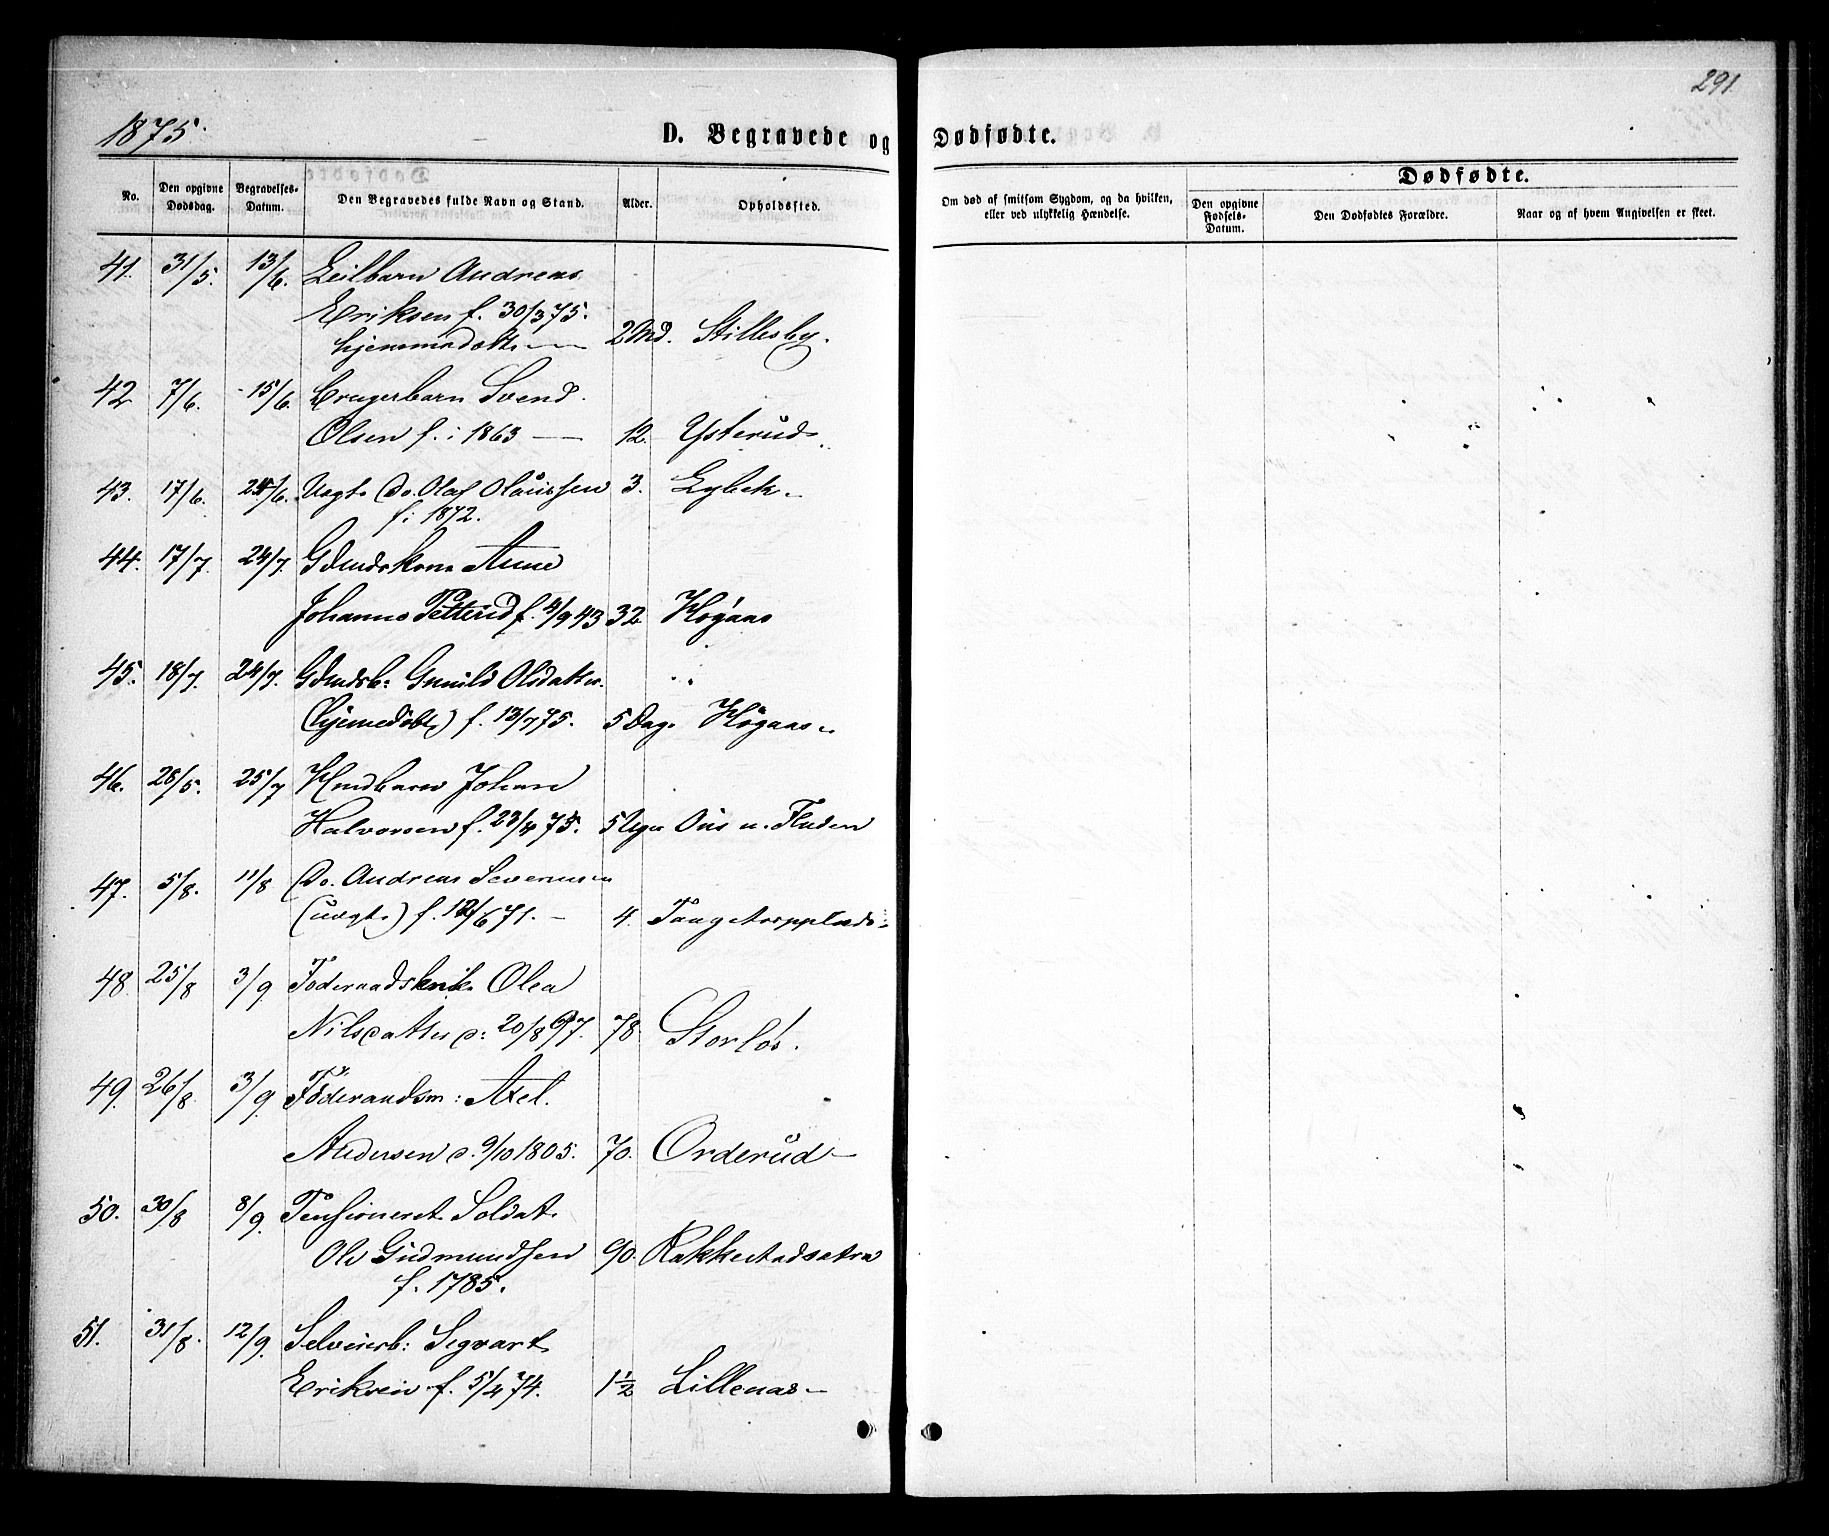 291
1875.
D. Begravede og Dødfødte.
No.
Den opgivne Dødsdag.
Begravelses-Datum.
Den Begravedes fulde Navn og Stand.
Alder.
Opholdssted.
Om død af smitsom Sygdom, og da hvilken, eller ved ulykkelig Hændelse.
Dødfødte.
Den opgivne Fødsels-Datum.
Den Dødfødtes Forældre.
Naar og af hvem Angivelsen er skeet.
41. 31/5. 13/6. Leilbarn Andreas
Eriksen f. 30/3 75.
hjemmedøbt 2 Md. Stillesby.
42 7/6. 15/6. Brugerbarn Svend
Olsen f. i 1863 12. Ysterud
43. 17/6. 25/6. Uægt. Do. Olaf Olaussen 3. Lybek
f. i 1872.
44. 17/7. 24/7. Gdmdskone Anne
Johanne f. 4/9 43 32 Høgaas
45. 18/7. 24/7. Gdmdsb: Gunild Olsdatter
(hjemmedøbt) f. 13/7 75. 5 Dag. Høgaas
46. 28/5. 25/7 Hmdbarn Johan
Halvorsen f. 23/4 75. 5 Uger Ous u. Fladen
47. 5/8. 11/8 Do. Andreas Severinsen
(uægt.) f. 12/6 71. 4.
48. 25/8 3/9 Føderaadsenke Olea
Nilsdatter d: 20/8 97. 78 Storløs.
49. 26/8. 3/9. Føderaadsm: Axel
Andersen d. 9/10 1805. 70. Orderud
50. 30/8 8/9. Pensioneret Soldat
Ole Gudmundsen 90. Rakkestadsætra
f. 1785.
51. 31/8. 12/9. Selveierb: Segvart
Eriksen f. 5/4 74. 1½ Lillenas